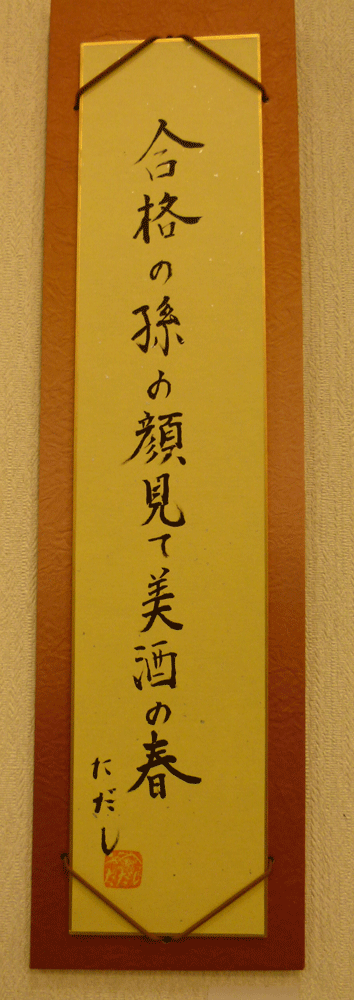 合格の孫の顔見て美酒の春
ただし